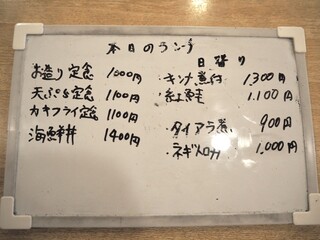 本日のランチ
お造り定食 1000円
天ぷら定食 1100円
カキフライ定食 1100円
海鮮丼 1400円
日替り
・キンメ煮付 1.300円
・紅鮭 1.100円
・タイアラ煮 900円
・ネギトロ丼 1,000円